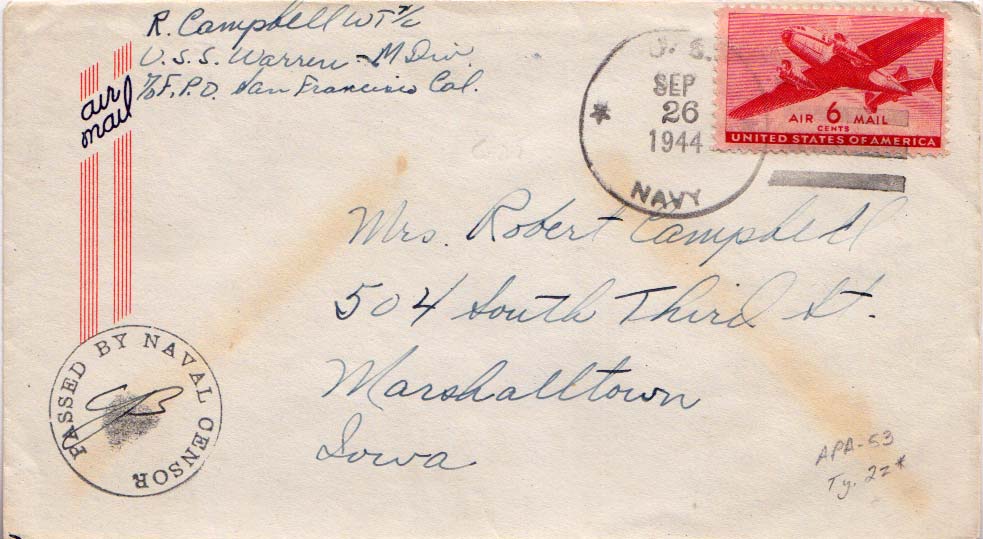 R. Campbell WT 2/c
U.S.S. Warren - M Div.
c/o F.P.O. San Francisco Cal.
air
mail
U. S.
SEP
26
1944
NAVY
AIR 6 MAIL
CENTS
UNITED STATES OF AMERICA
Mrs. Robert Campbell
504 South Third St.
Marshalltown
Iowa
PASSED BY NAVAL CENSOR
APA-53
Ty. 2z*